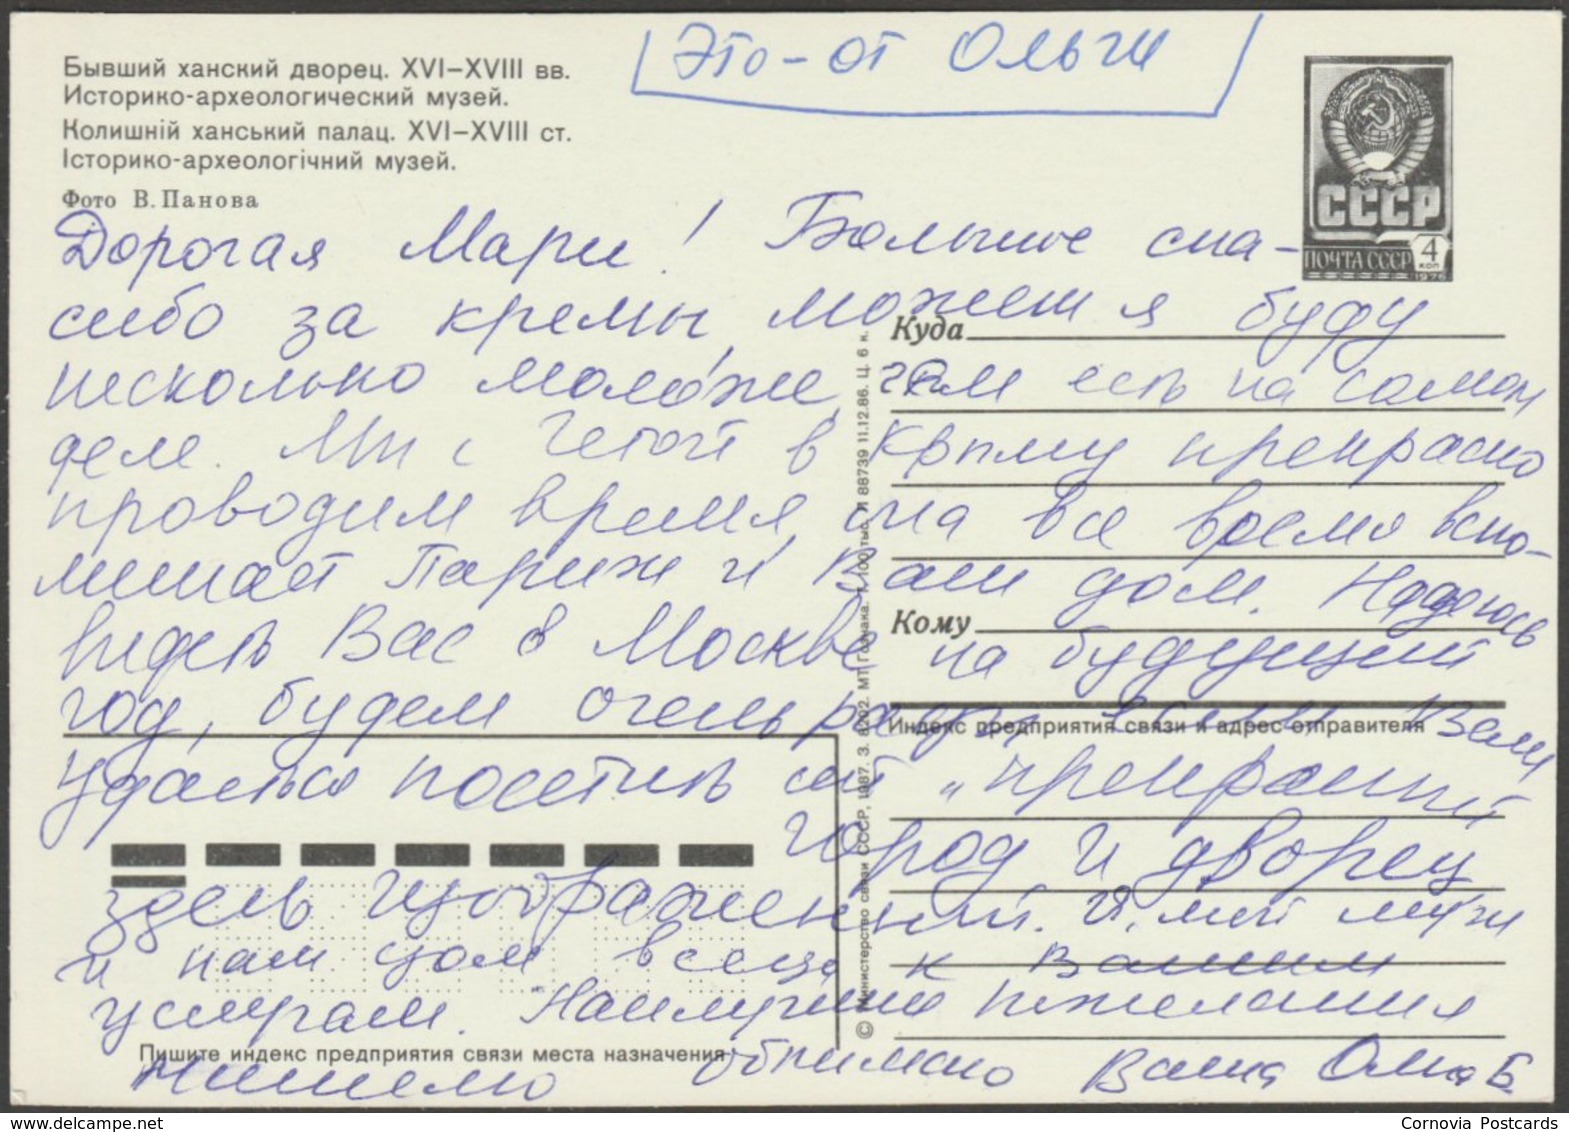 Это – от Ольги
Бывший ханский дворец. XVI–XVIII вв.
Историко-археологический музей.
Колишній ханський палац. XVI–XVIII ст.
Історико-археологічний музей.
Фото В. Панова
СССР
ПОЧТА СССР 4 КОП
1976
Дорогая Мари! Большое спа-
сибо за кремы, может я буду
несколько моложе, чем есть на самом
деле. Мы с в Крыму прекрасно
проводим время, она все время вспо-
минает Париж и Ваш дом. Надеюсь
видеть Вас в Москве на будущий
год, будем очень рады, если Вам
удастся посетить сей „прекрасный
город и дворец
здесь изображенный. Я, мой муж
и наш дом всегда к Вашим
услугам. Наилучшие пожелания
Мишелю обнимаю Ваша Ольга Б
Куда
Кому
Индекс предприятия связи и адрес отправителя
Пишите индекс предприятия связи места назначения
© Министерство связи СССР, 1987. З. 8202. МТ Гознака. Т. 100 тыс. Л 88739 11.12.86. Ц. 6 к.
Cornovia Postcards